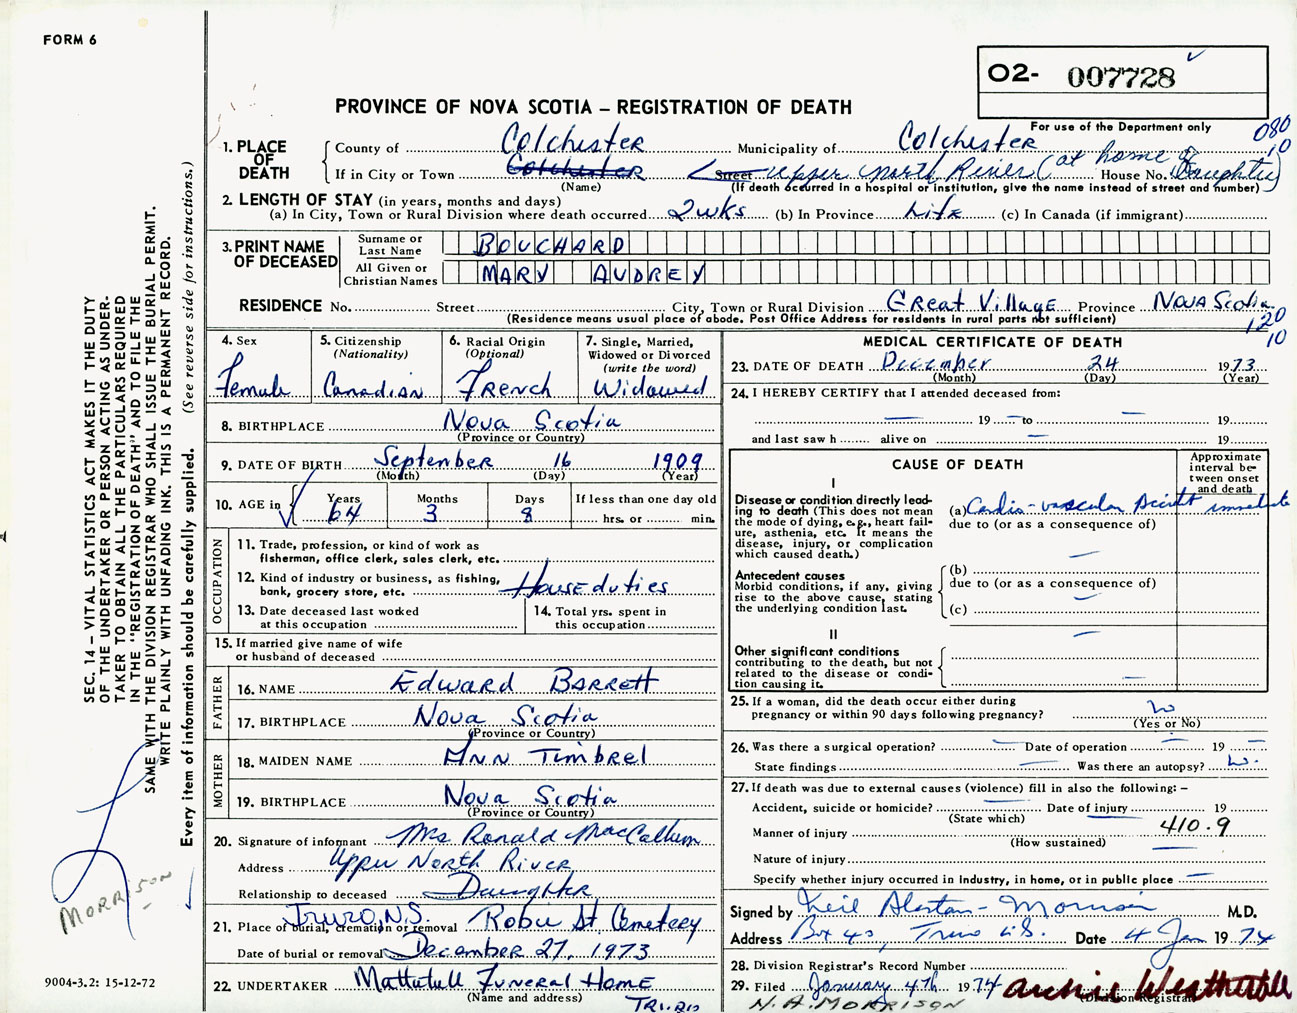 FORM 6
O2- 007728
PROVINCE OF NOVA SCOTIA – REGISTRATION OF DEATH
For use of the Department only
080
10
1. PLACE OF DEATH
County of Colchester Municipality of Colchester
If in City or Town Colchester Street Upper North River (at home of Daughter) House No.
(Name) (If death occurred in a hospital or institution, give the name instead of street and number)
2. LENGTH OF STAY (in years, months and days)
(a) In City, Town or Rural Division where death occurred 2 wks (b) In Province Life (c) In Canada (if immigrant)
3. PRINT NAME OF DECEASED
Surname or Last Name BOUCHARD
All Given or Christian Names MARY AUDREY
RESIDENCE No. Street City, Town or Rural Division Great Village Province Nova Scotia
(Residence means usual place of abode. Post Office Address for residents in rural parts not sufficient)
120
10
4. Sex Female
5. Citizenship (Nationality) Canadian
6. Racial Origin (Optional) French
7. Single, Married, Widowed or Divorced (write the word) Widowed
8. BIRTHPLACE Nova Scotia
(Province or Country)
9. DATE OF BIRTH September 16 1909
(Month) (Day) (Year)
10. AGE in Years 64 Months 3 Days 8 If less than one day old hrs. or min.
OCCUPATION
11. Trade, profession, or kind of work as fisherman, office clerk, sales clerk, etc.
12. Kind of industry or business, as fishing, bank, grocery store, etc. House duties
13. Date deceased last worked at this occupation
14. Total yrs. spent in this occupation
15. If married give name of wife or husband of deceased
FATHER
16. NAME Edward Barrett
17. BIRTHPLACE Nova Scotia
(Province or Country)
MOTHER
18. MAIDEN NAME Ann Timbrel
19. BIRTHPLACE Nova Scotia
(Province or Country)
20. Signature of informant Mrs Ronald MacCallum
Address Upper North River
Relationship to deceased Daughter
21. Place of burial, cremation or removal Truro, N.S. Robie St Cemetery
Date of burial or removal December 27, 1973
22. UNDERTAKER Mattatall Funeral Home
(Name and address) Truro
MEDICAL CERTIFICATE OF DEATH
23. DATE OF DEATH December 24 1973
(Month) (Day) (Year)
24. I HEREBY CERTIFY that I attended deceased from:
19 to 19
and last saw h alive on 19
CAUSE OF DEATH
Approximate interval between onset and death
I
Disease or condition directly leading to death (This does not mean the mode of dying, e.g., heart failure, asthenia, etc. It means the disease, injury, or complication which caused death.)
(a) Cardio-vascular immediate
due to (or as a consequence of)
Antecedent causes
Morbid conditions, if any, giving rise to the above cause, stating the underlying condition last.
(b)
due to (or as a consequence of)
(c)
II
Other significant conditions contributing to the death, but not related to the disease or condition causing it.
25. If a woman, did the death occur either during pregnancy or within 90 days following pregnancy?
(Yes or No)
26. Was there a surgical operation? Date of operation 19
State findings Was there an autopsy?
27. If death was due to external causes (violence) fill in also the following: –
Accident, suicide or homicide? Date of injury 19
(State which)
410.9
Manner of injury
(How sustained)
Nature of injury
Specify whether injury occurred in Industry, in home, or in public place
Signed by Neil Morrison M.D.
Address Box 40, Truro N.S. Date 4 Jan 1974
28. Division Registrar's Record Number
29. Filed January 4th 1974 Archie Weatherbee
(Division Registrar)
N.A. MORRISON
SEC. 14 – VITAL STATISTICS ACT MAKES IT THE DUTY
OF THE UNDERTAKER OR PERSON ACTING AS UNDER-
TAKER TO OBTAIN ALL THE PARTICULARS REQUIRED
IN THE "REGISTRATION OF DEATH" AND TO FILE THE
SAME WITH THE DIVISION REGISTRAR WHO SHALL ISSUE THE BURIAL PERMIT.
WRITE PLAINLY WITH UNFADING INK. THIS IS A PERMANENT RECORD.
Every item of information should be carefully supplied. (See reverse side for instructions.)
MORRISON
9004-3.2: 15-12-72